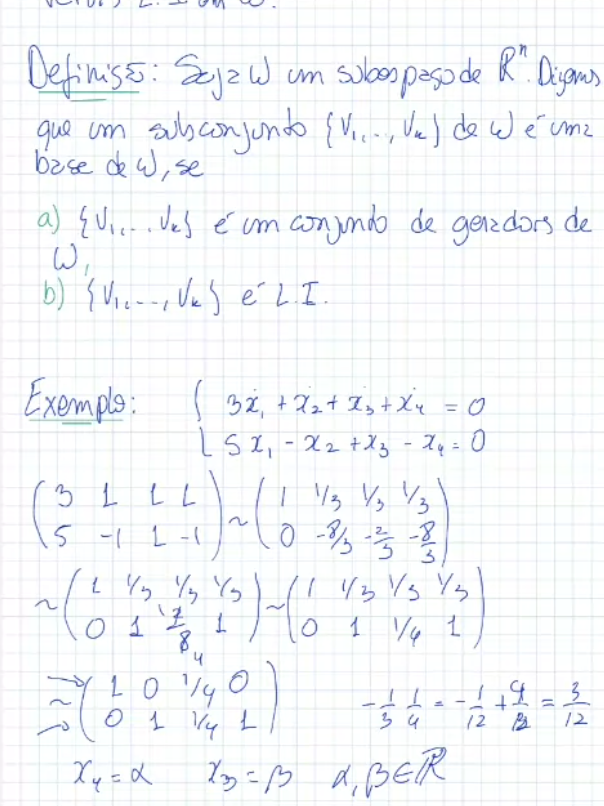 Definição: Seja W um subespaço de ℝⁿ. Digamos
que um subconjunto {V₁,..., Vₖ} de W é uma
base de W, se
a) {V₁,...Vₖ} é um conjundo de geradors de
W,
b) {V₁,...,Vₖ} é L.I.
Exemplo: { 3x₁ + x₂ + x₃ + x₄ = 0
5x₁ - x₂ + x₃ - x₄ = 0
(3 1 1 1 ; 5 -1 1 -1) ~ (1 1/3 1/3 1/3 ; 0 -8/3 -2/3 -8/3)
~ (1 1/3 1/3 1/3 ; 0 1 2/8 1) ~ (1 1/3 1/3 1/3 ; 0 1 1/4 1)
~ (1 0 1/4 0 ; 0 1 1/4 1) -1/3 1/4 = -1/12 + 4/12 = 3/12
x₄ = α x₃ = β α, β ∈ ℝ